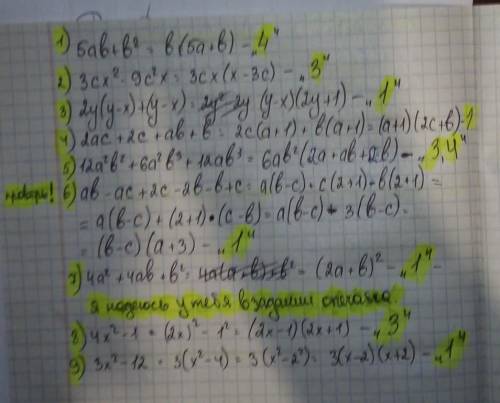 1) 5ab+b² = b(5a+b) - „4"
2) 3cx² - 9c²x = 3cx(x-3c) - „3"
3) 2y(y-x)+(y-x) = (y-x)(2y+1) - „1"
4) 2ac+2c+ab+b = 2c(a+1)+b(a+1)=(a+1)(2c+b)-1
5) 12a²b²+6a²b³+12ab³ = 6ab²(2a+ab+2b) - „3,4"
проверь! 6) ab-ac+2c-2b-b+c = a(b-c)+c(2+1)-b(2+1) =
= a(b-c)+(2+1)·(c-b)=a(b-c)-3(b-c) =
= (b-c)(a+3) - „1"
7) 4a²+4ab+b² = (2a+b)² - „1" -
я надеюсь у тебя в задании опечатка.
8) 4x²-1 = (2x)²-1² = (2x-1)(2x+1) - „3"
9) 3x²-12 = 3(x²-4) = 3(x²-2²) = 3(x-2)(x+2) - „1"